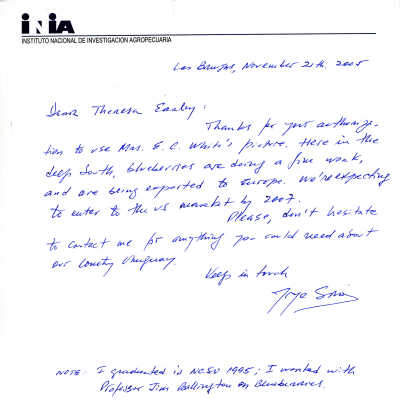 INIA
INSTITUTO NACIONAL DE INVESTIGACION AGROPECUARIA
Las Brujas, November 21th. 2005
Dear Theresa Earley:
Thanks for your authoriza-
tion to use Mrs. E. C. White's picture. Here in the
deep South, blueberries are doing a fine work,
and are being exported to Europe. We're expecting
to enter to the US market by 2007.
Please, don't hesitate
to contact me for anything you could need about
our country Uruguay.
Keep in touch
NOTE: I graduated in NCSU 1995; I worked with
Professor Jim Ballington on Blueberries.